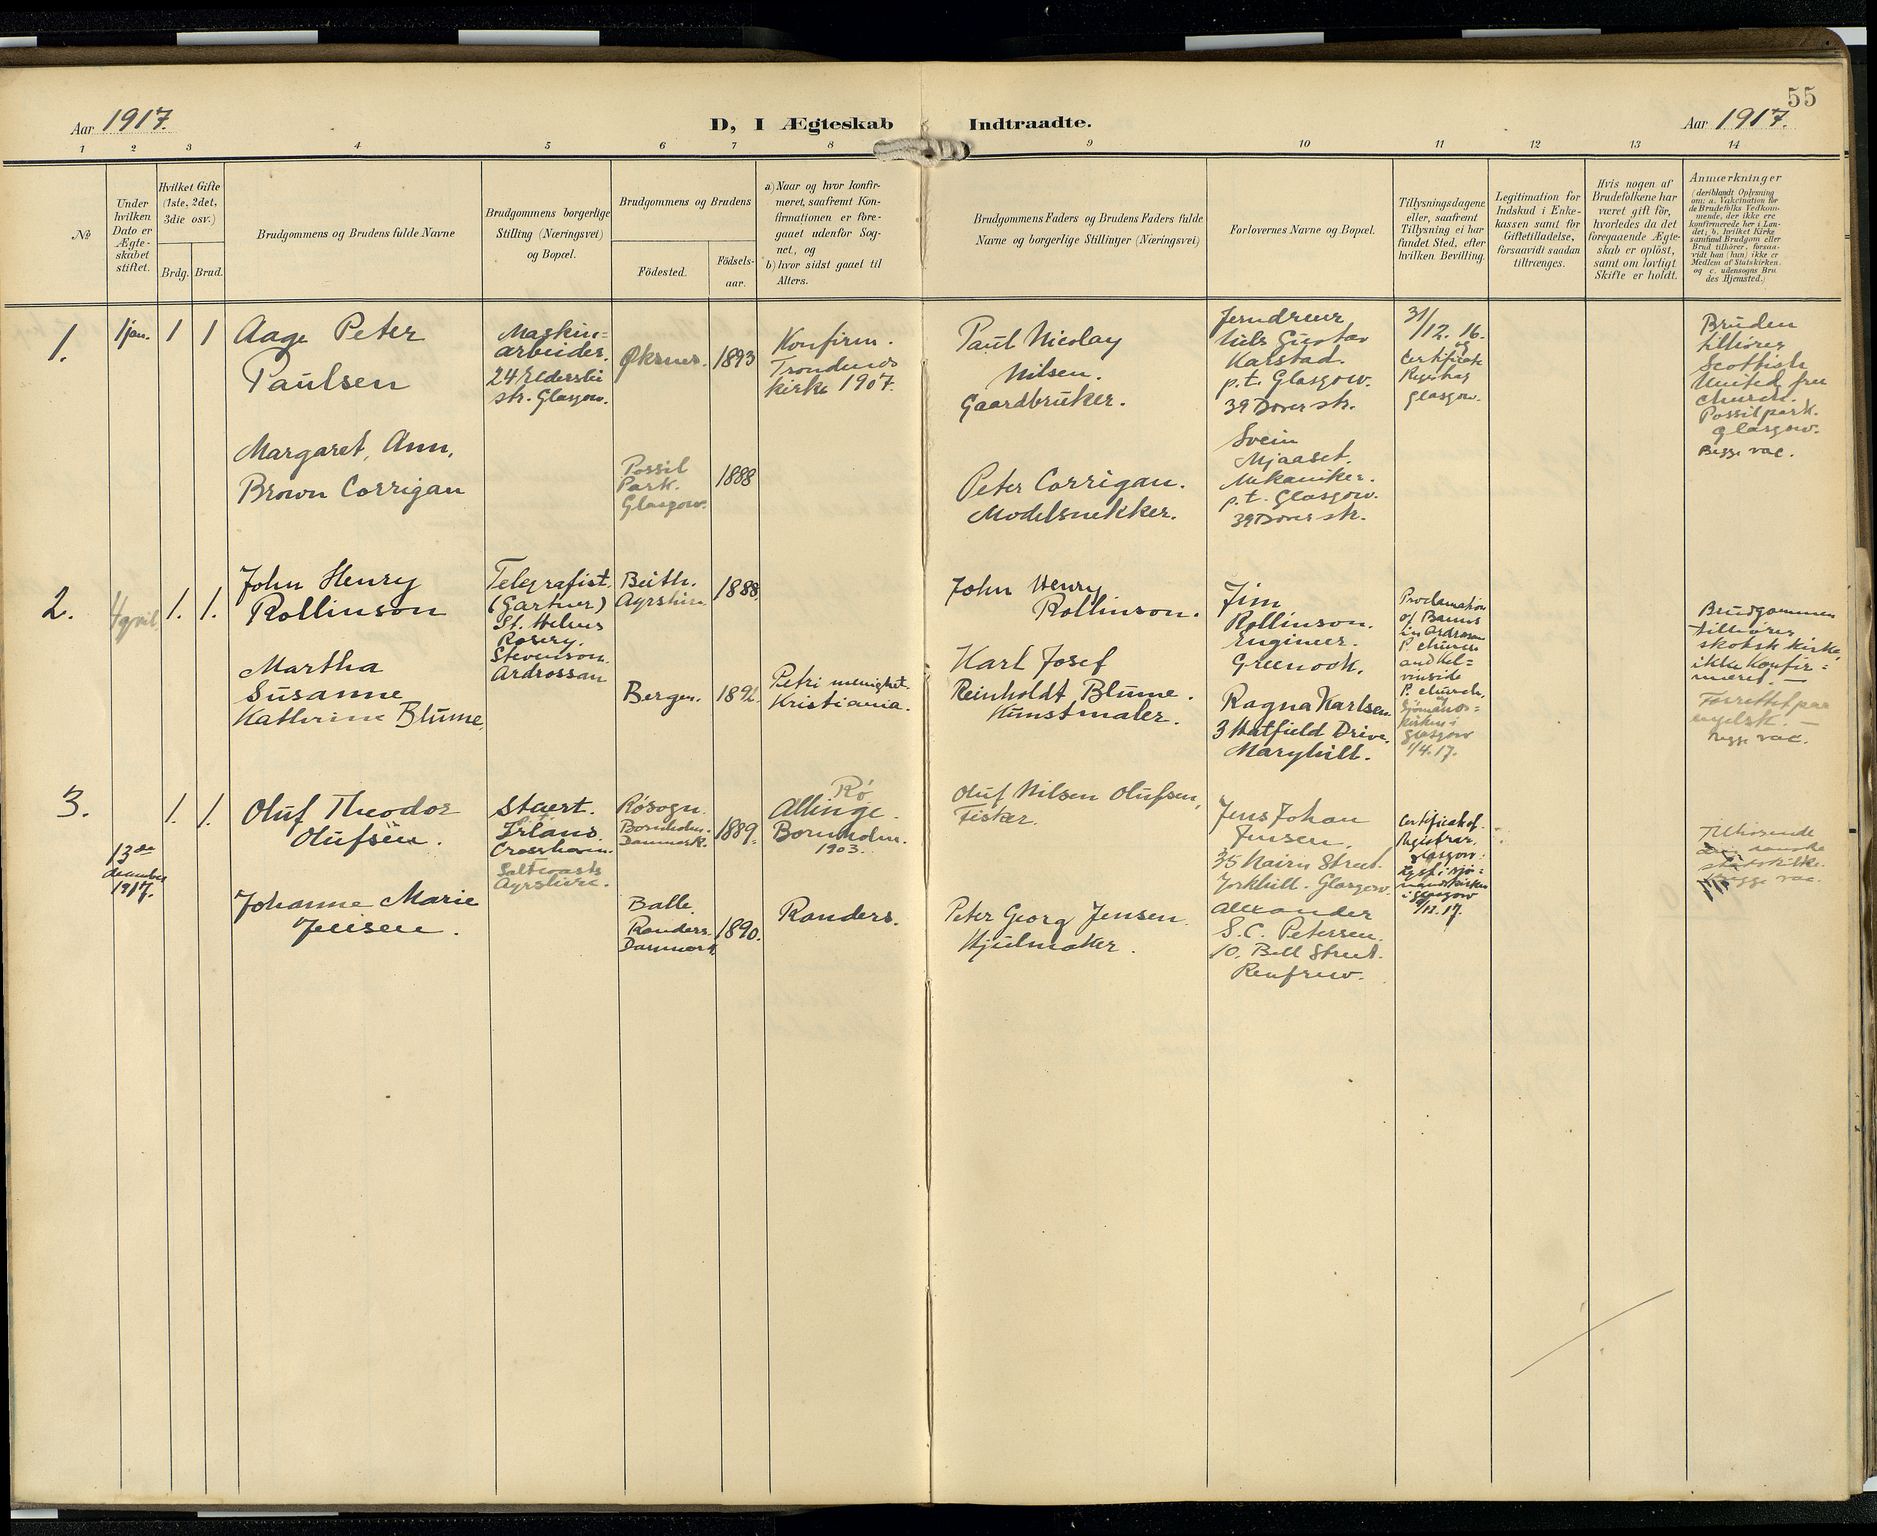 55
Aar 1917.
D, I Ægteskab Indtraadte.
Aar 1917.
1 2 3 4 5 6 7 8 9 10 11 12 13 14
No
Under
hvilken
Dato er
Ægte-
skabet
stiftet.
Hvilket Gifte
(1ste, 2det,
3die osv.)
Brdg. Brud.
Brudgommens og Brudens fulde Navne
Brudgommens borgerlige
Stilling (Næringsvei)
og Bopæl.
Brudgommens og Brudens
Födested.
Födsels-
aar.
a) Naar og hvor konfir-
meret, saafremt Kon-
firmationen er fore-
gaaet udenfor Sog-
net, og
b) hvor sidst gaaet til
Alters.
Brudgommens Faders og Brudens Faders fulde
Navne og borgerlige Stillinger (Næringsvei)
Forlovernes Navne og Bopæl.
Tillysningsdagene
eller, saafremt
Tillysning ei har
fundet Sted, efter
hvilken Bevilling.
Legitimation for
Indskud i Enke-
kassen samt for
Giftetilladelse,
forsaavidt saadan
tiltrænges.
Hvis nogen af
Brudefolkene har
været gift för,
hvorledes da det
foregaaende Ægte-
skab er oplöst,
samt om lovligt
Skifte er holdt.
Anmærkninger
(deriblandt Oplysning
om: a. Vakcination for
de Brudefolks Vedkom-
mende, der ikke ere
konfirmerede her i Lan-
det; b. hvilket Kirke
samfund Brudgom eller
Brud tilhörer, forsaa-
vidt han (hun) ikke er
Medlem af Statskirken.
og c. udensogns Bru
des Hjemsted.)
1.
1 jan.
1
1
Aage Peter
Paulsen
Maskin-
arbeider.
24 Elderslie
str. Glasgow.
Øksnes.
1893
Konfirm.
Trondenes
kirke 1907.
Paul Nicolay
Nilsen.
Gaardbruker.
Jerndreier
Niels Gustav
Karstad.
p.t. Glasgow.
39 Dover str.
31/12. 16.
og
Certificate
Registrar
Glasgow.
Bruden
tilhører
Scottish
United free
Church.
Possilpark.
Glasgow.
Begge vac.
Margaret, Ann,
Brown Corrigan
Possil
Park.
Glasgow.
1888
Peter Corrigan.
Modelsnekker.
Svein
Mjaaset.
Mekaniker.
p.t. Glasgow.
39 Dover str.
2.
4 april
1.
1.
John Henry
Rollinson
Telegrafist.
(Gartner)
St. Helens
Rosery.
Stevenson.
Ardrossan
Beith.
Ayrshire.
1888.
John Henry
Rollinson.
Jim
Rollinson.
Engineer.
Greenock.
Proclamation
of Banns
in Ardrossan
P. church
and Kel-
vinside
P. church,
og
Sjømands-
kirken i
Glasgow
1/4.17.
Brudgommen
tilhører
skotsk kirke,
ikke konfir-
meret. —
Forrettet paa
engelsk. —
Begge vac.
Martha
Susanne
Kathrine Blume.
Bergen.
1892.
Petri menighet.
Kristiania.
Karl Josef
Reinholdt Blume.
Kunstmaler.
Ragna Karlsen.
3 Hatfield Drive.
Maryhill.
3.
13de
december
1917.
1.
1.
Oluf Theodor
Olufsen.
Crosshaven.
Saltcoats
Ayrshire.
Røsogn.
Bornholm.
Danmark.
1889.
Rø
Allinge.
Bornholm.
1903.
Oluf Nilsen Olufsen,
Fisker.
Jens Johan
Jensen.
35 Nairn Street.
Yorkhill. Glasgow.
Certificat of.
Registrar.
Glasgow.
Lyst i sjø-
mandskirken
i Glasgow
/12.17.
Tilhørende
den danske
statskirke.
Begge vac.
Johanne Marie
Jensen.
Balle.
Randers.
Danmark.
1890.
Randers.
Peter Georg Jensen
Hjulmaker.
Alexander
S. C. Petersen.
10. Bell Street.
Renfrew.